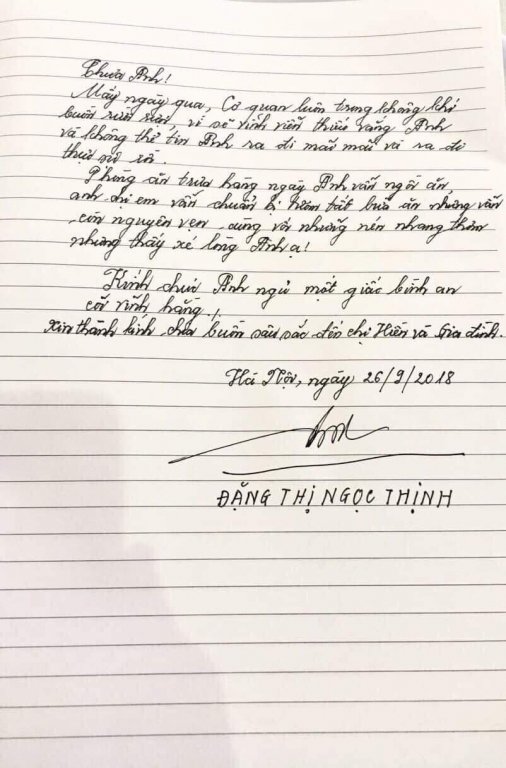 Thưa Anh!
Mấy ngày qua, Cơ quan luôn trong không khí
buồn rười rượi vì sẽ vĩnh viễn thiếu vắng Anh
và không thể tin Anh ra đi mãi mãi và ra đi
thực sự rồi.
Phòng ăn trưa hàng ngày Anh vẫn ngồi ăn,
anh chị em vẫn chuẩn bị tươm tất bữa ăn nhưng vẫn
còn nguyên vẹn cùng với những nén nhang thơm
nhưng thấy xé lòng Anh ạ!
Kính chúc Anh ngủ một giấc bình an
cõi vĩnh hằng./.
Xin thành kính chia buồn sâu sắc đến chị Hiền và Gia đình.
Hà Nội, ngày 26/9/2018
ĐẶNG THỊ NGỌC THỊNH